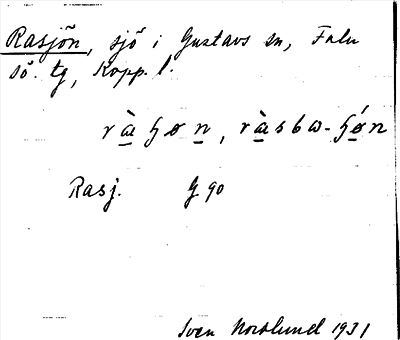 Rasjön, sjö i Gustavs sn, Falu
sö. tg, Kopp. l.
ràɧøn, ràsbω-ɧǿn
Rasj. G 90
Sven Norslund 1931